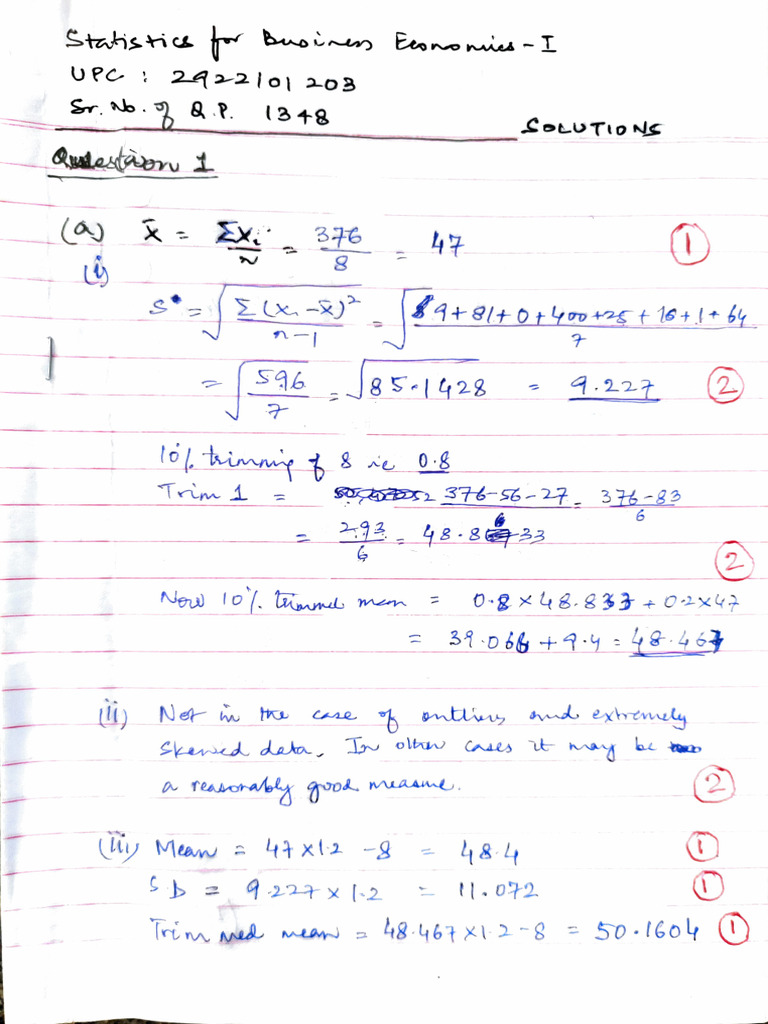 Statistics for Business Economics - I
UPC : 2922101203
Sr. No. of Q.P. 1348
SOLUTIONS
Question 1
(a) x̄ = ΣXi/n = 376/8 = 47 (1)
(i)
S = √(Σ(Xi-x̄)²/(n-1)) = √((9+81+0+400+25+16+1+64)/7)
= √(596/7) = √85.1428 = 9.227 (2)
10% trimming of 8 ie 0.8
Trim 1 = (376-56-27)/6 = (376-83)/6
= 293/6 = 48.833 (2)
Now 10% trimmed mean = 0.8 × 48.833 + 0.2 × 47
= 39.066 + 9.4 = 48.467
(ii) Not in the case of outliers and extremely
skewed data. In other cases it may be
a reasonably good measure. (2)
(iii) Mean = 47 × 1.2 - 8 = 48.4 (1)
SD = 9.227 × 1.2 = 11.072 (1)
Trimmed mean = 48.467 × 1.2 - 8 = 50.1604 (1)